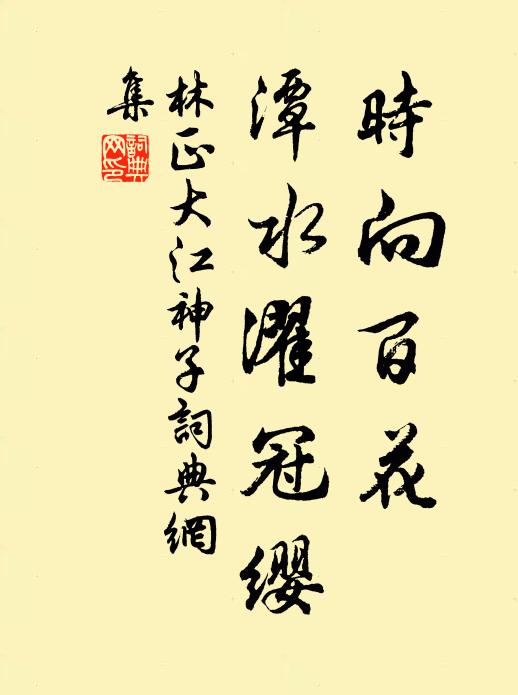 時向百花
潭水濯冠纓
林正大江神子詞典網
集
詞典
网印